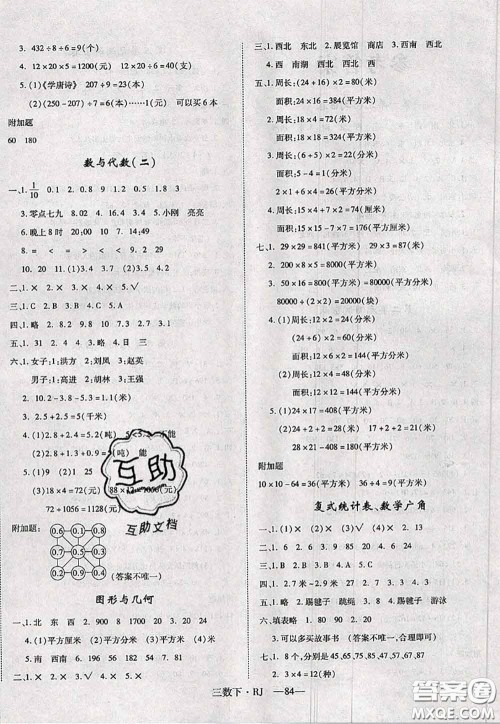 3. 432÷8÷6=9(个)
4. 12×20×5=1200(元)
5. (1)《学唐诗》 207÷9=23(本)
(2)(250-207)÷7=6(本)……1(元) 可以买6本
附加题
60 180
数与代数(二)
一、1. 1/10 0.1 2. 0.8 9 1.2 0.5 1.8 3
3. 零点七九 8.02 4. 16.4 5. 小刚 亮亮
6. 晚上8时 20:00 7. 14:49
8. < = < < < > 9. 0.2 0.3 0.4
10. 20 11. (1)3.5 (2)4
二、1. × 2. × 3. × 4. × 5. √
三、1. C 2. B 3. B 4. A 5. C
四、1. 略 2. 18 710 7 24 3. 略
五、1. 略 2. 4 31 90 日 三
六、1. 女子:1. 洪方 2. 刘凤 3. 赵英
男子:1. 高进 2. 胡林 3. 王强
2.
3. 2.5+2.5=5(千米)
4. (1)2.8+2.4=5.2(吨) 不能
(2)2.8+1.3+0.9=5(吨) 能
5. 18×4=72(元) 88×12=1056(元)
72+1056=1128(元)
附加题: 0.6 0.1 0.8
0.7 0.5 0.3
0.2 0.9 0.4 (答案不唯一)
图形与几何
一、1. 北 东 西 2. 900 8 1700 3. 20 24
4. (1)平方厘米 (2)平方分米 (3)平方米
5. 南 西南 6. 24 20 7. 9 18 8. 24
二、1. × 2. × 3. × 4. √ 5. ×
三、1. 西北 东北 2. 展览馆 商店 3. 西南 西北
4. 西 南湖 西北 西北
五、1. 周长:(24+16)×2=80(米)
面积:24×16=384(平方米)
2. 周长:18×4=72(米)
面积:18×18=324(平方米)
3. 面积:15×7=105(平方厘米)
4. 周长:(12+5)×2=34(分米)
面积:12×5=60(平方分米)
5. 周长:15×4=60(分米)
面积:15×15=225(平方分米)
2×1×6=12(平方分米)
七、1. 29×29=841(平方米) 29×3=87(平方米)
2. 200×15=3000(平方米)
3. 50×16=800(平方分米)=80000(平方厘米)
80000÷(2×2)=20000(块)
4. (1)周长:12×2=24(分米)
(24+6)×2=60(分米)
面积:12×6×2=144(平方分米)
(2)周长:12×4=48(分米)
面积:12×12=144(平方分米)
5. (1)18×10=180(平方米)
(2)(24-3)×(20-2)=378(平方米)
28×21-408=180(平方米)
附加题
10×10-64=36(平方米) 36÷4=9(平方米)
复式统计表、数学广角
一、1. (1)24 (2)47 (3)√ (4)× 2. 13
二、1. × 2. × 3. √
三、1. B 2. C 3. B 4. A
五、1. 略 2. 踢毽子 跳绳 3. 踢毽子 4. 略
六、1. 填表略 2. 18 13
3. 可以多买故事书 (答案不唯一,合理即可)
七、1. 8个,分别是45,65,75,85,48,58,68,78
2. 3×4=12(种)
三数下·RJ —84—
互助
互助文档
答案圈
MXQE.COM